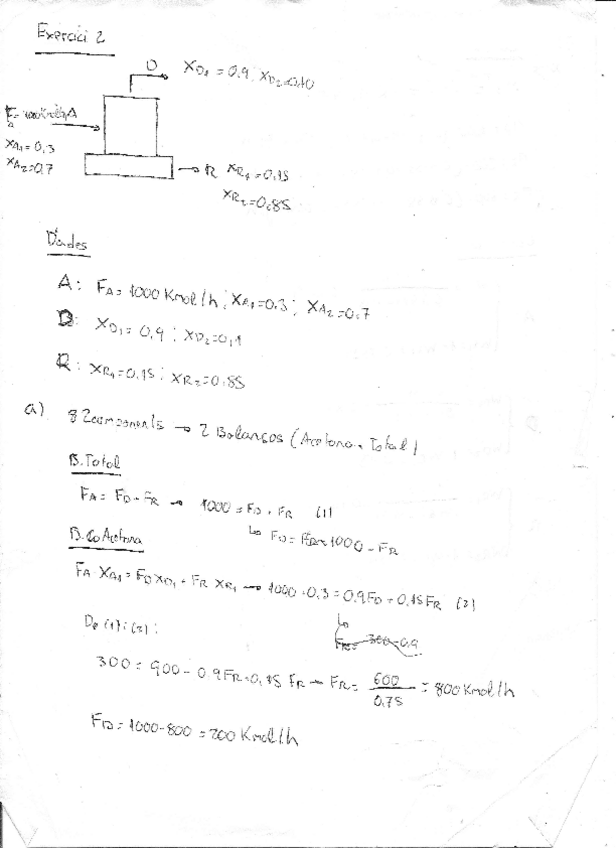 Exercici 2
D
XD1 = 0.9 ; XD2=0.10
F= 1000 Kmol/h A
XA1= 0.3
XA2=0.7
R XR1 = 0.15
XR2=0.85
Dades
A: FA= 1000 Kmol/h ; XA1=0.3 ; XA2=0.7
D: XD1= 0.9 ; XD2=0.1
R: XR1=0.15 ; XR2=0.85
a) 2 components → 2 Balanços (Acetona, Total)
B. Total
FA= FD+FR → 1000 = FD + FR (1)
↳ FD= 1000 - FR
B. Acetona
FA·XA1= FD XD1 + FR XR1 → 1000·0.3 = 0.9FD + 0.15FR (2)
De (1) i (2):
300 = 900 - 0.9FR+0.15 FR → FR= 600/0.75 = 800 Kmol/h
FD= 1000-800 = 200 Kmol/h